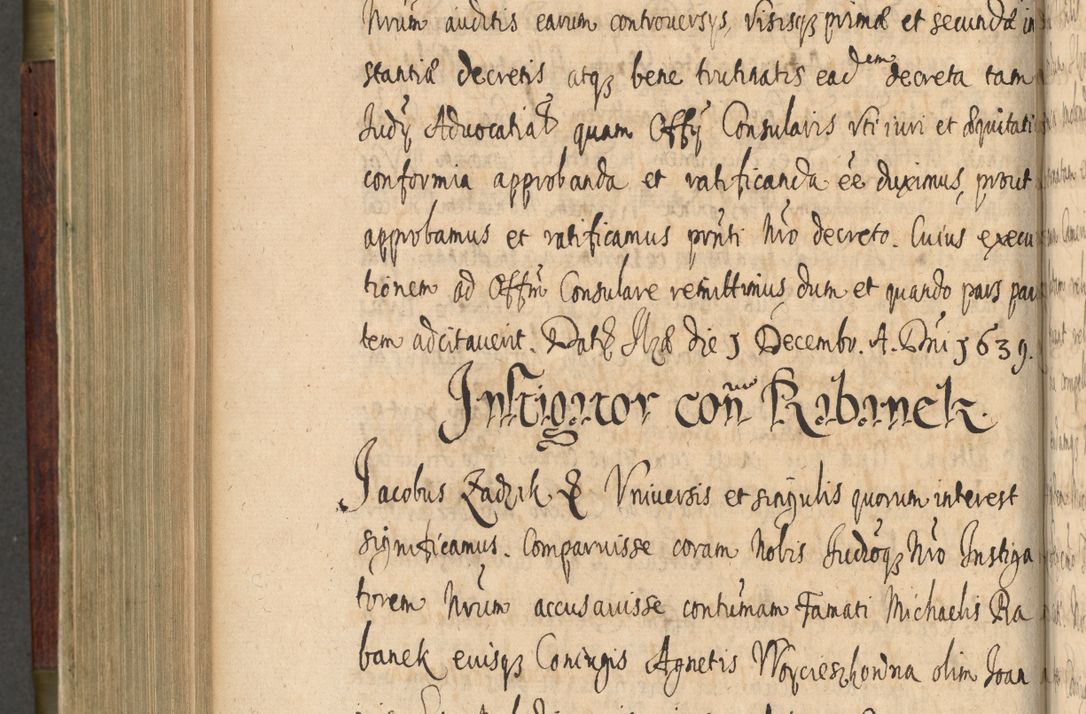 Nrum auditis earum controversys, visisq3 primæ et secundæ in
stantiæ decretis atq3 bene trutinatis ead dem decreta tam
Judy Advocatialis quam Offy Consularis uti iuri et æquitati
conformia approbanda et ratificanda ẽe duximus, prout
approbamus et ratificamus pñti Nro decreto. Cuius execu
tionem ad Offm Consulare remittimus, dum et quando pars par
tem adcitaverit. Dat Ilzæ die 1 Decembr. A. Dni 1639.
Instigator con Rabanek.
Jacobus Zadzik & Universis et singulis quorum interest
significamus. Comparuisse coram Nobis Judioq3 Nro Instiga
torem Nrum accusavisse contumam Famati Michaelis Ra
banek eiusq3 Coniugis Agnetis Woycieszkowna olim Joan